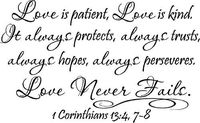 Love is patient, Love is kind.
It always protects, always trusts,
always hopes, always perseveres.
Love Never Fails.
1 Corinthians 13:4, 7-8